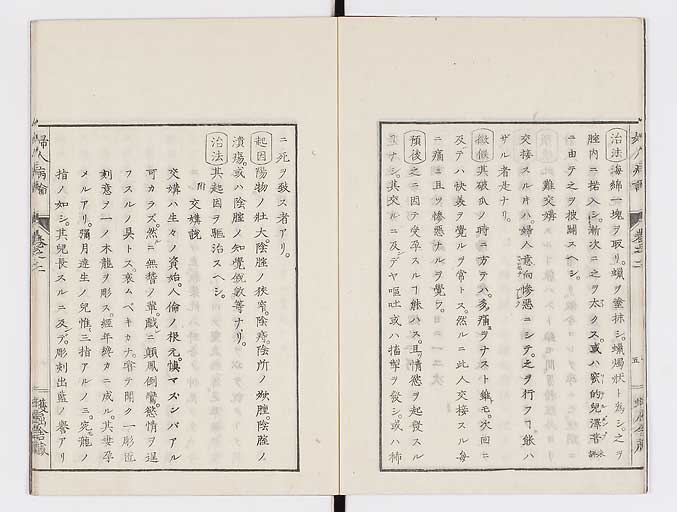 治法海綿一塊ヲ取リ。蝋ヲ塗抹シ。蝋燭状ト為シ。之ヲ
腟内ニ揩入シ。漸次ニ之ヲ太クス。或ハ蜜的兒澤普
ニ由テ之ヲ披闢スヘシ。
難交媾
交接スル片ハ。婦人意向惨悪ニシテ。之ヲ行フヿ能ハ
ザル者是ナリ。
徴候其破瓜ノ時ニ方テハ。疼痛ヲナスト雖モ。次回ニ
及テハ快美ヲ覺ルヲ常トス。然ルニ此人交接スル毎
ニ痛ミ且ツ惨悪ナルヲ覺フ。
預後之ニ因テ受孕スルヿ能ハス。且情慾ヲ起發スル
ナシ。其交ルニ及デヤ嘔吐或ハ搐掣ヲ發シ。或ハ
ニ死ヲ致ス者アリ。
起因陽物ノ壮大。陰腟ノ狹窄。陰痔。陰所ノ焮腫。陰腟ノ
潰瘍。或ハ陰腟ノ知覺鋭敏等ナリ。
治法其起因ヲ驅治スヘシ。
附 交媾説
交媾ハ生々ノ資始。人倫ノ根元。慎マズンバアル
可カラズ。然ニ無智ノ輩。戯ニ顛鳳倒鸞。慾情ヲ逞
フスルノ具トス。哀ムベキカナ。嘗テ聞ク一彫匠
刻意ヲ一ノ木龍ヲ彫ス。經年終カニ成ル。其妻孕
メルアリ。彌月達生ノ兒。惟三指アルノミ。宛龍ノ
指ノ如シ。其兒長スルニ及デ。彫刻出藍ノ譽アリ
婦人病論
巻之二